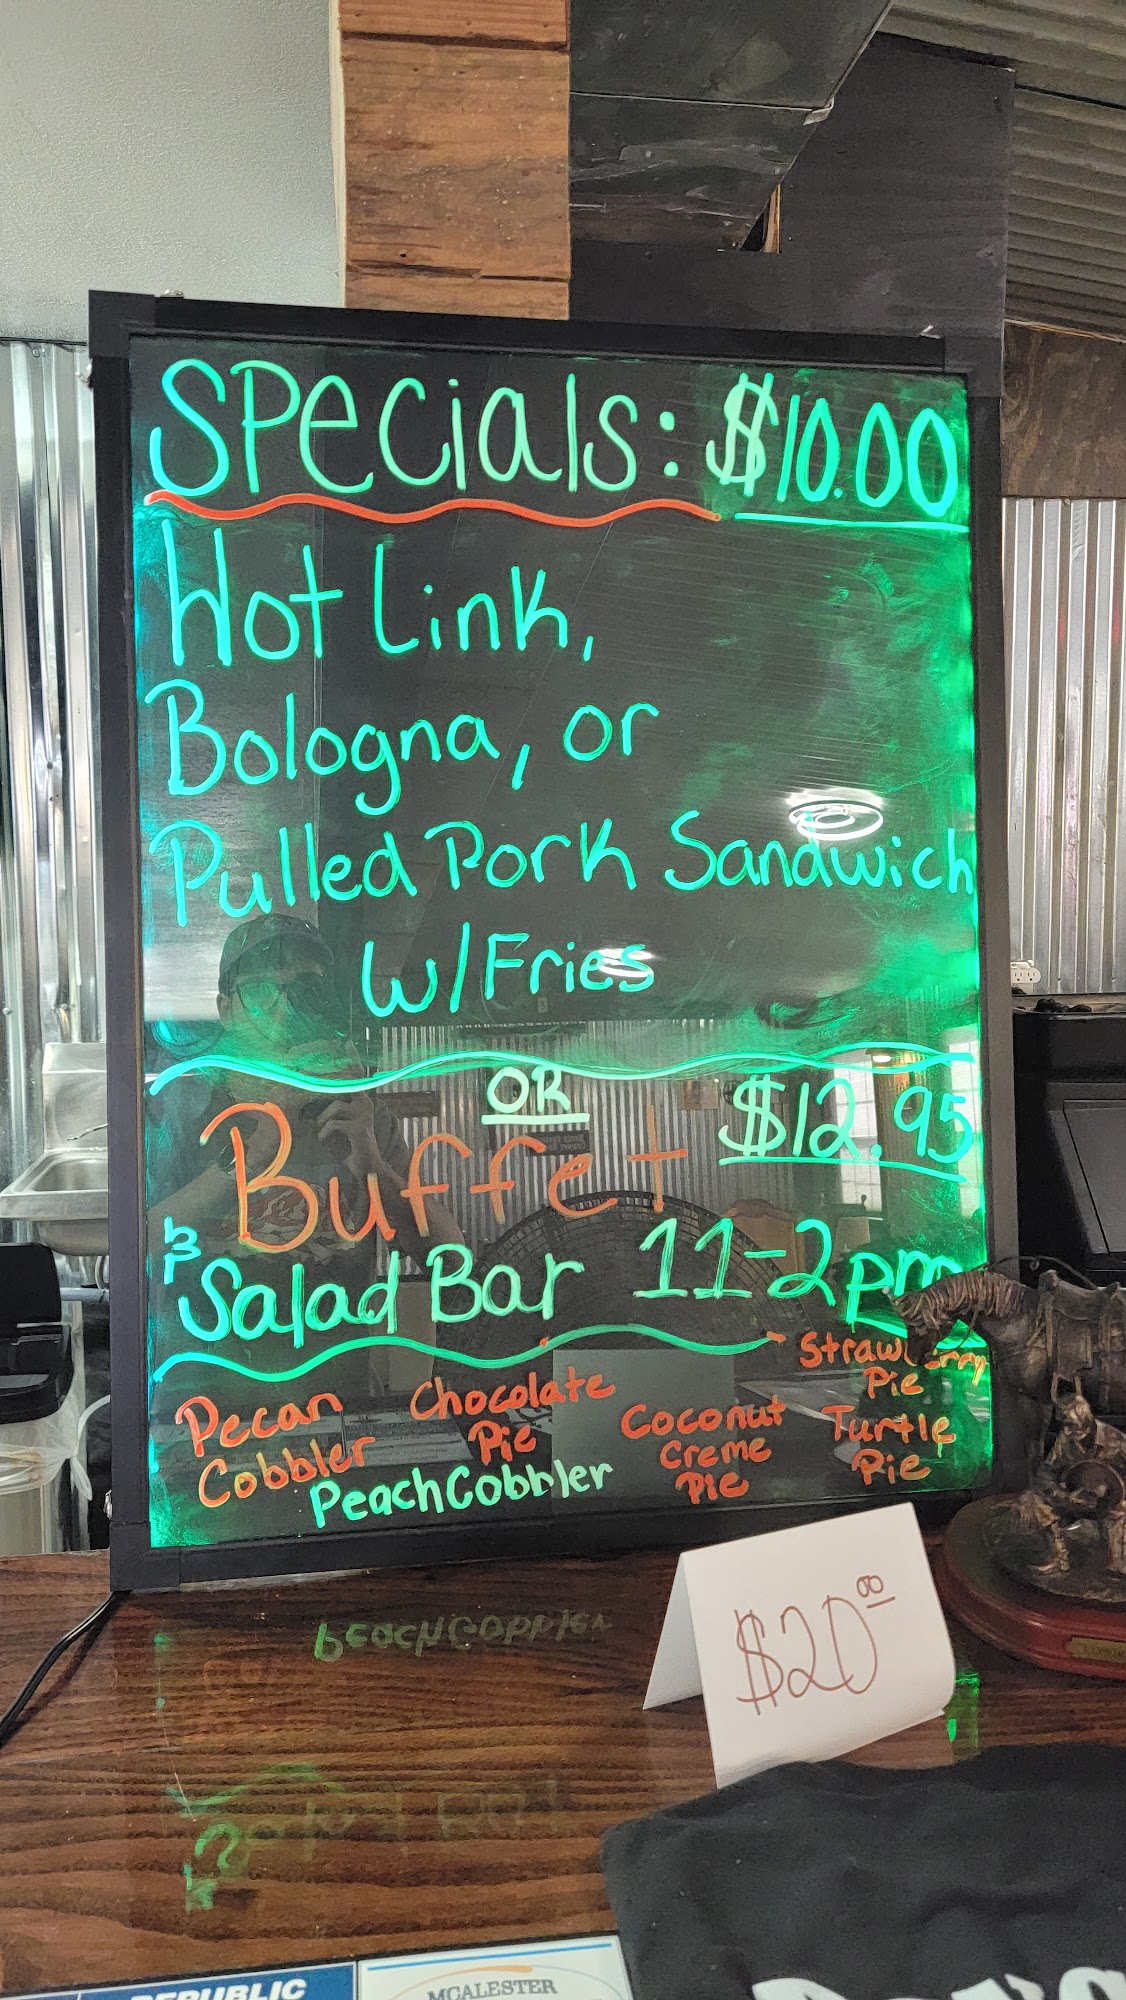 Specials: $10.00
Hot Link,
Bologna, or
Pulled Pork Sandwich
w/Fries
OR
Buffet $12.95
Salad Bar 11-2pm
Strawberry
Pie
Pecan
Cobbler
Chocolate
Pie
Coconut
Creme
Pie
Turtle
Pie
Peach Cobbler
$20.00
REPUBLIC
MCALESTER